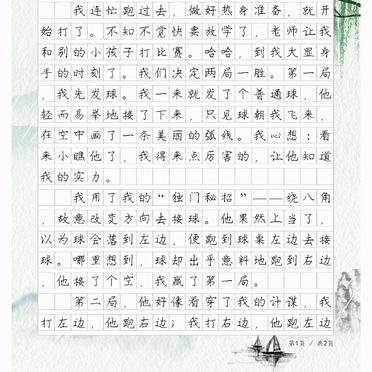 我连忙跑过去，做好热身准备，就开
始打了。不知不觉快要放学了，老师让我
和别的小孩子打比赛。哈哈，到我大显身
手的时刻了。我们决定两局一胜。第一局
，我先发球。我一来就发了个普通球，他
轻而易举地接了下来，只见球朝我飞来，
在空中画了一条美丽的弧线。我心想：看
来小瞧他了，我得来点厉害的，让他知道
我的实力。
我用了我的“独门秘招”——绕八角
，故意改变方向去接球。他果然上当了，
以为球会落到左边，便跑到球桌左边去接
球。哪里想到，球却出乎意料地跑到右边
，他接了个空，我赢了第一局。
第二局，他好像看穿了我的计谋，我
打左边，他跑右边；我打右边，他跑左边
第1页 / 共2页